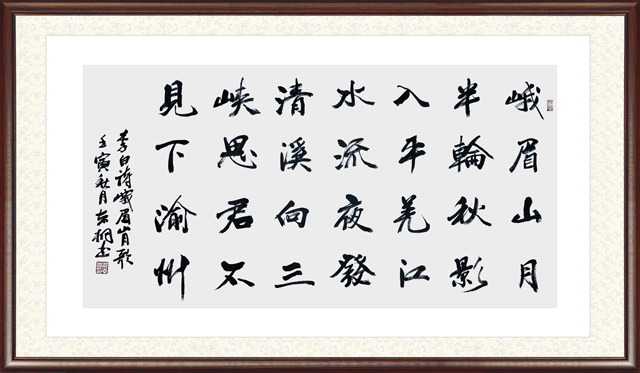 峨眉山月
半輪秋影
入平羌江
水流夜發
清溪向三
峽思君不
見下渝州
李白诗峨眉山月歌
壬寅秋月